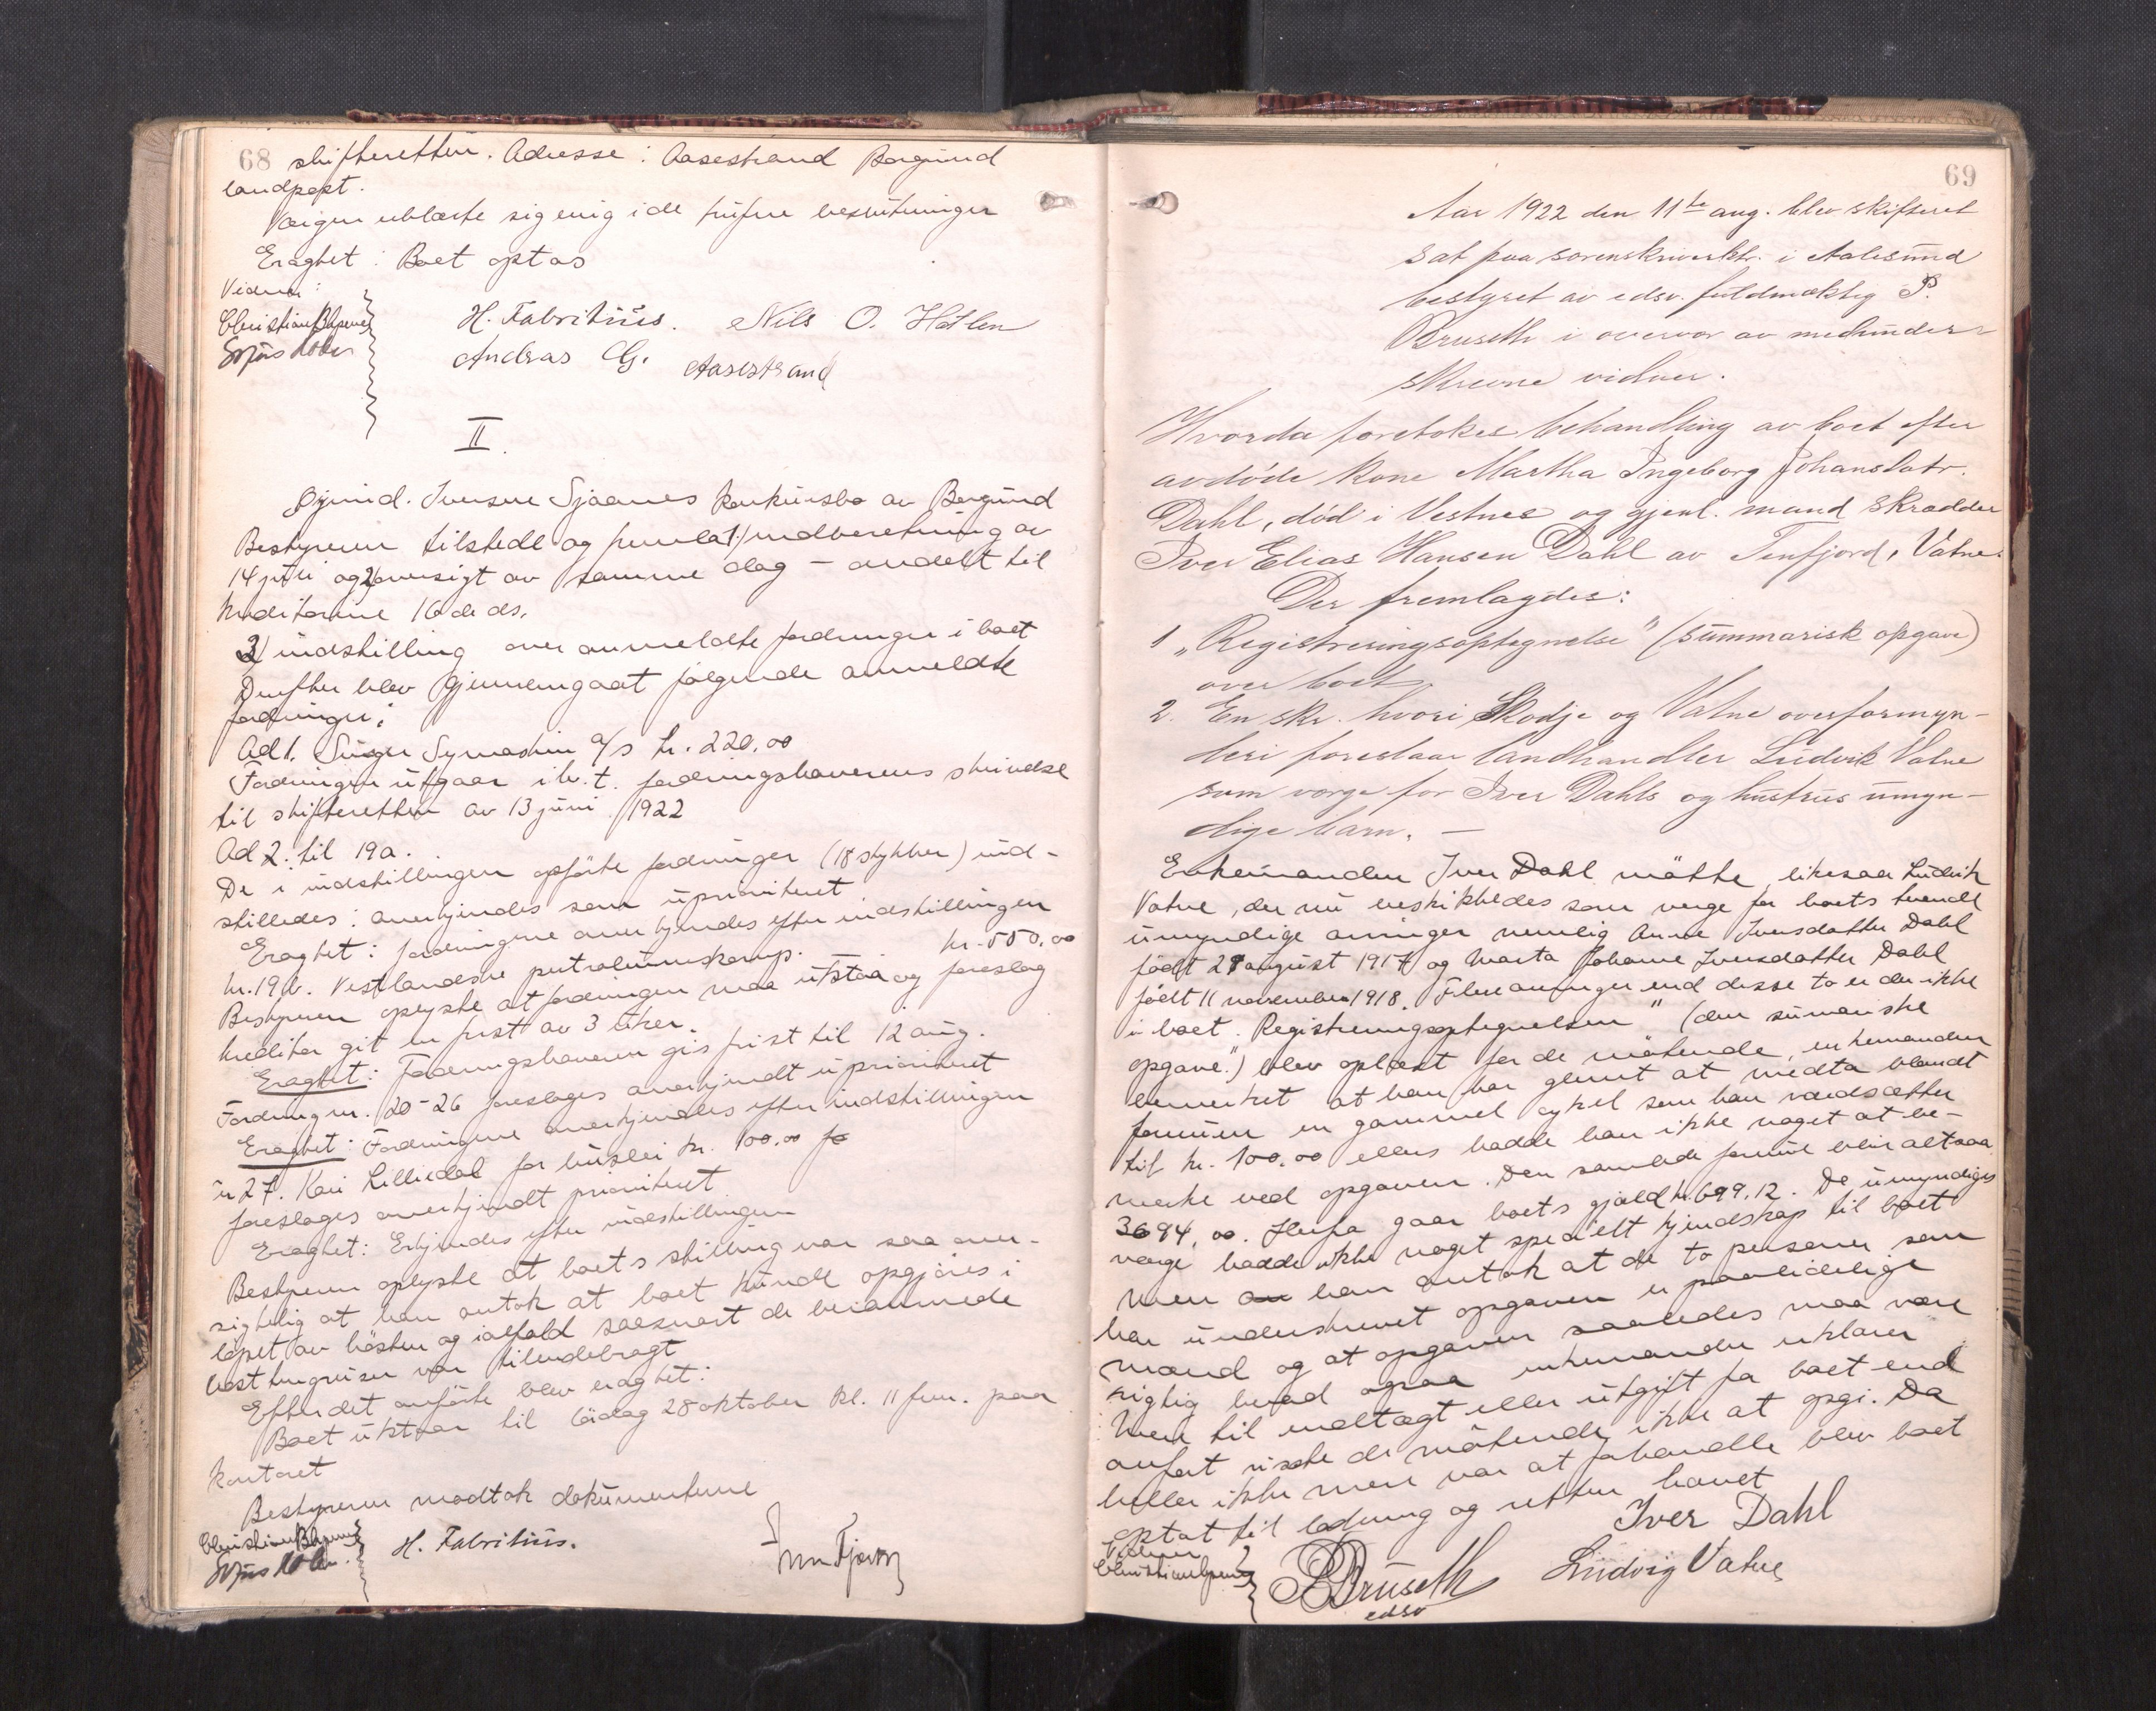 68 skifteretten. Adresse: Aasestrand Borgund
landpost.
Værgen erklærte sig enig i de trufne beslutninger
Eragtet: Boet optas
Vidner:
H. Fabritius. Nils O. Hatlen
Andreas G. Aasestrand
II.
Iversen Sjaanes konkursbo av Borgund
Bestyreren tilstede og fremla 1) indberetning av
14 juli og 2) oversigt av samme dag – omdelt til
kreditorerne 16de ds.
3) indstilling over anmeldte fordringer i boet
Derefter blev gjennemgaat følgende anmeldte
fordringer:
Ad 1. Singer Symaskin a/s kr. 220,00
Fordringen utgaar i h.t. fordringshaverens skrivelse
til skifteretten av 13 juni 1922
Ad 2. til 19a.
De i indstillingen opførte fordringer (18 stykker) ind-
stilledes: anerkjendes som uprioritert
Eragtet: fordringene anerkjendes efter indstillingen
nr. 19b. Vestlandske petroleumskomp. kr. 550,00
Bestyreren oplyste at fordringen maa utstaa og foreslog
kreditor git en frist av 3 uker.
Eragtet: Fordringshaveren gis frist til 12 aug.
Fordring nr. 20-26 foreslages anerkjendt uprioritert
Eragtet: Fordringene anerkjendes efter indstillingen
nr 27. Kari Lilledal for husleie kr. 100,00
foreslages anerkjendt prioritert
Eragtet: Erkjendes efter indstillingen
Bestyreren oplyste at boets stilling var saa over-
sigtelig at han antok at boet kunde opgjøres i
løpet av høsten og ialfald saasnart de berammede
var tilendebragt
Efter det anførte blev eragtet:
Boet utstaar til lørdag 28 oktober kl. 11 fm. paa
kontoret
Bestyreren modtok dokumenterne
H. Fabritius.
69
Aar 1922 den 11te aug. blev skifteret
sat paa sorenskriverktr. i Aalesund
bestyret av edsv. fuldmægtig P.
Bruseth i overvær av medunder-
skrevne vidner.
Hvorda foretokes behandling av boet efter
avdøde kone Martha Ingeborg Johansdatr.
Dahl, død i Vestnes og gjenl. mand skrædder
Iver Elias Hansen Dahl av Tenfjord, Vatne.
Der fremlagdes:
1 „Registreringsoptegnelse" (summarisk opgave)
over boet.
2. En skr. hvori Skodje og Vatne overformyn-
deri foreslaar landhandler Ludvik Vatne
som værge for Iver Dahls og hustrus umyn-
dige barn. –
Enkemanden Iver Dahl møtte, likesaa Ludvik
Vatne, der nu beskikkedes som verge for boets tvende
umyndige arvinger nemlig Anne Iversdatter Dahl
født 27 august 1917 og Marta Johanne Iversdatter Dahl
født 11 november 1918. Flere arvinger end disse to er der ikke
i boet. Registreringsoptegnelsen" (den sumariske
opgave") blev oplæst for de møtende, enkemanden
bemerket at han har glemt at medta blandt
formuen en gammel cykel som han værdsætter
til kr. 100,00 ellers hadde han ikke noget at be-
merke ved opgaven. Den samlede formue blir altsaa
3694,00. Herfra gaar boets gjæld kr. 699,12. De umyndiges
verge hadde ikke noget specielt kjendskap til boet
men han antok at de to personer som
har underskrevet opgaven er paalidelige
mænd og at opgaven saaledes maa være
rigtig hvad ogsaa enkemanden erklærer
Mere til indtægt eller utgift for boet end
anført visste de møtende ikke at opgi. Da
heller ikke mere var at forhandle blev boet
optat til lodning og retten hævet
Iver Dahl
Vidner
PBruseth Ludvig Vatne
edsv